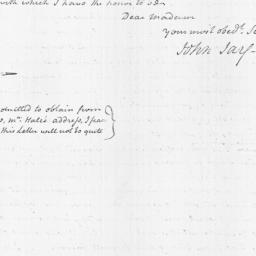 with which I have the honor to be
Dear Madam
your most obed.t Se
John Jay
omitted to obtain from
mr. Hale's address, I fear
this Letter will not be quite